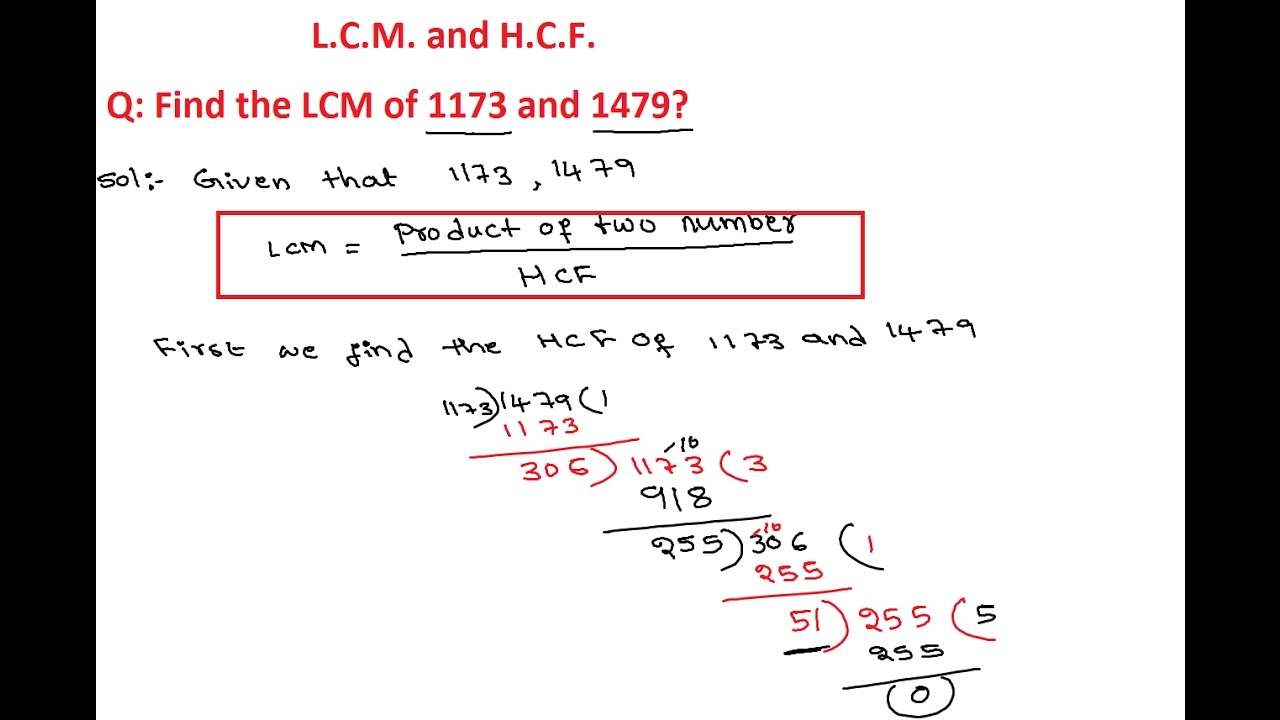 L.C.M. and H.C.F.
Q: Find the LCM of 1173 and 1479?
Sol:- Given that 1173, 1479
LCM = Product of two number
HCF
First we find the HCF of 1173 and 1479
1173)1479(1
1173
10
306)1173(3
918
10
255)306(1
255
51)255(5
255
(0)